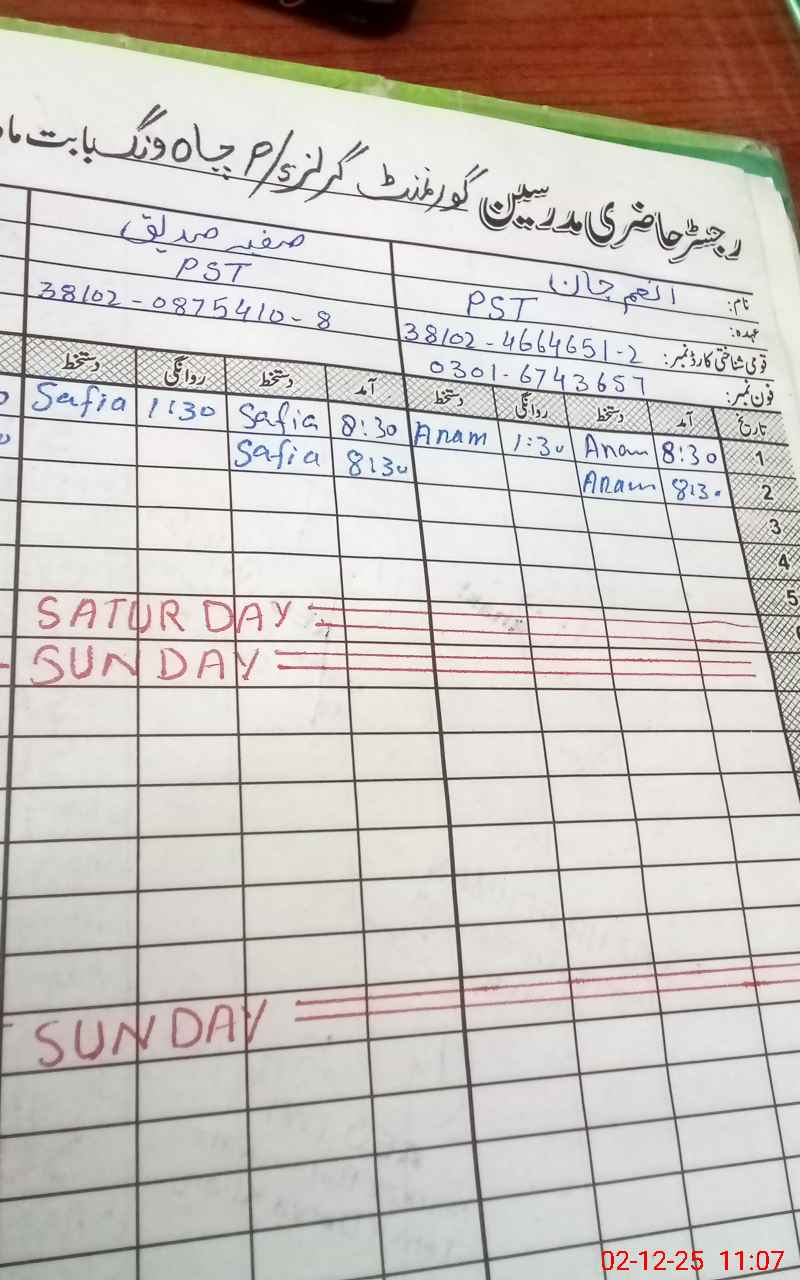 رجسٹر حاضری مدرسین گورنمنٹ گرلز P/S چاہ ونگ بابت ماہ
نام: انعم جان
عہدہ: PST
قومی شناختی کارڈ نمبر: 38102-4664651-2
فون نمبر: 0301-6743657
صفیہ صدیق
PST
38102-0875410-8
تاریخ آمد دستخط روانگی دستخط آمد دستخط روانگی دستخط
1 8:30 Anam 1:30 Anam 8:30 Safia 1:30 Safia
2 8:30 Anam 8:30 Safia
3
4
5
SATURDAY
SUNDAY
SUNDAY
02-12-25 11:07